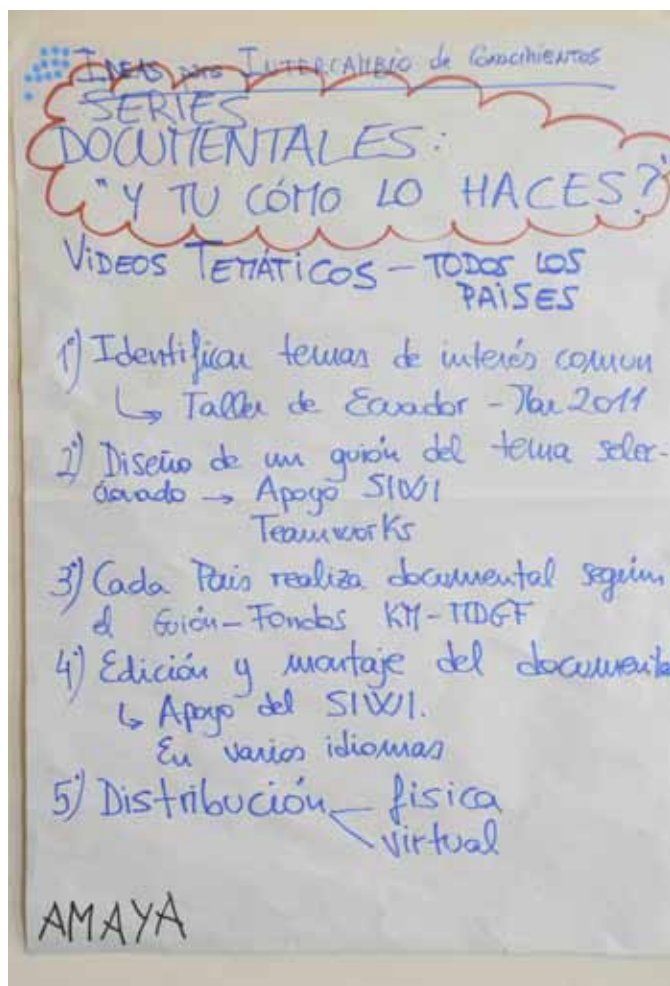 IDEAS para INTERCAMBIO de Conocimientos
SERIES
DOCUMENTALES:
"Y TU CÓMO LO HACES?
VIDEOS TEMÁTICOS – TODOS LOS
PAÍSES
1º) Identificar temas de interés comun
↳ Taller de Ecuador - Mar 2011
2º) Diseño de un guión del tema selec-
cionado → Apoyo SIWI
Teamworks
3º) Cada Pais realiza documental según
el Guión – Fondos KM-MDGF
4º) Edición y montaje del documental
↳ Apoyo del SIWI.
En varios idiomas
5º) Distribución física
virtual
AMAYA